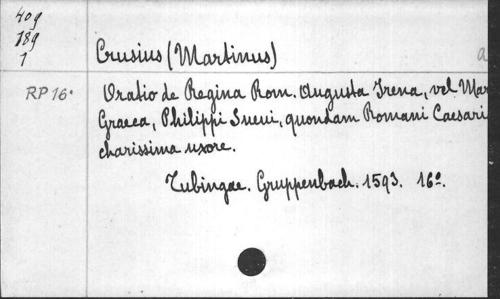 409
789
1
Crusius (Martinus) a
RP 16°
Oratio de Regina Rom. Augusta Irena, vel Mar
Graeca, Philippi Sueui, quondam Romani Caesari
charissima uxore.
Tubingae. Gruppenbach. 1593. 16°.